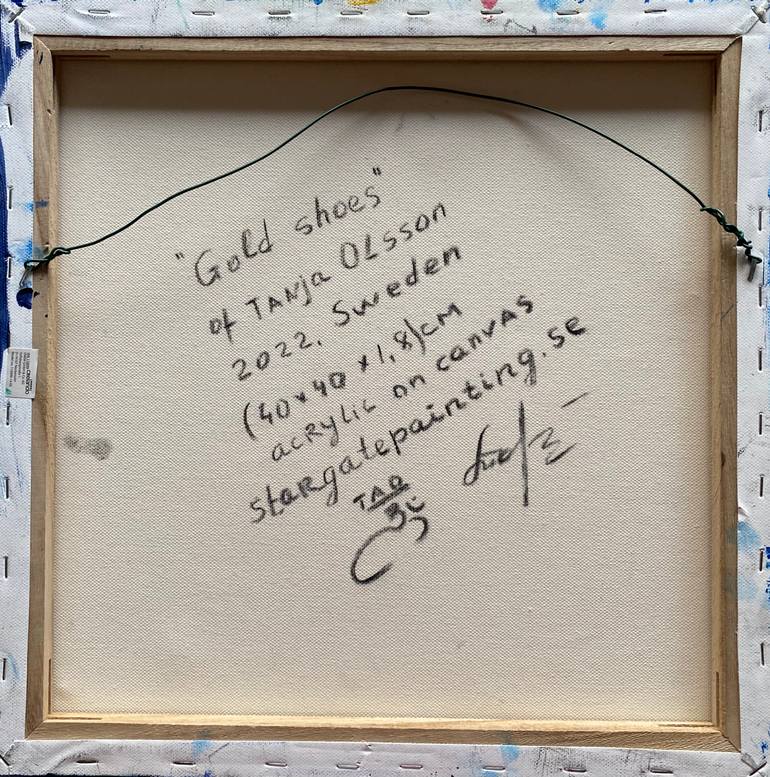 "Gold shoes"
of TANJa OLsson
2022. Sweden
(40x40 x1,8)cm
acRylic on canvas
staRgatepainting.se
TAO